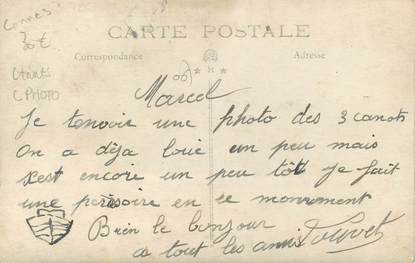 Cannes
30 €
CARTE POSTALE
Correspondance
Adresse
* B *
Canots
CPHOTO
Marcel
Je tenvoir une photo des 3 canots
On a déja loué un peu mais
sest encore un peu tôt Je fait
une périsoire en ce monument
Bien le bonjour
a tout les amis